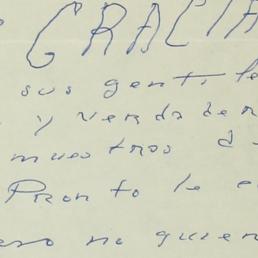 GRACIA
sus gentile
y verder
muestros d
Pronto le e
eso no quier